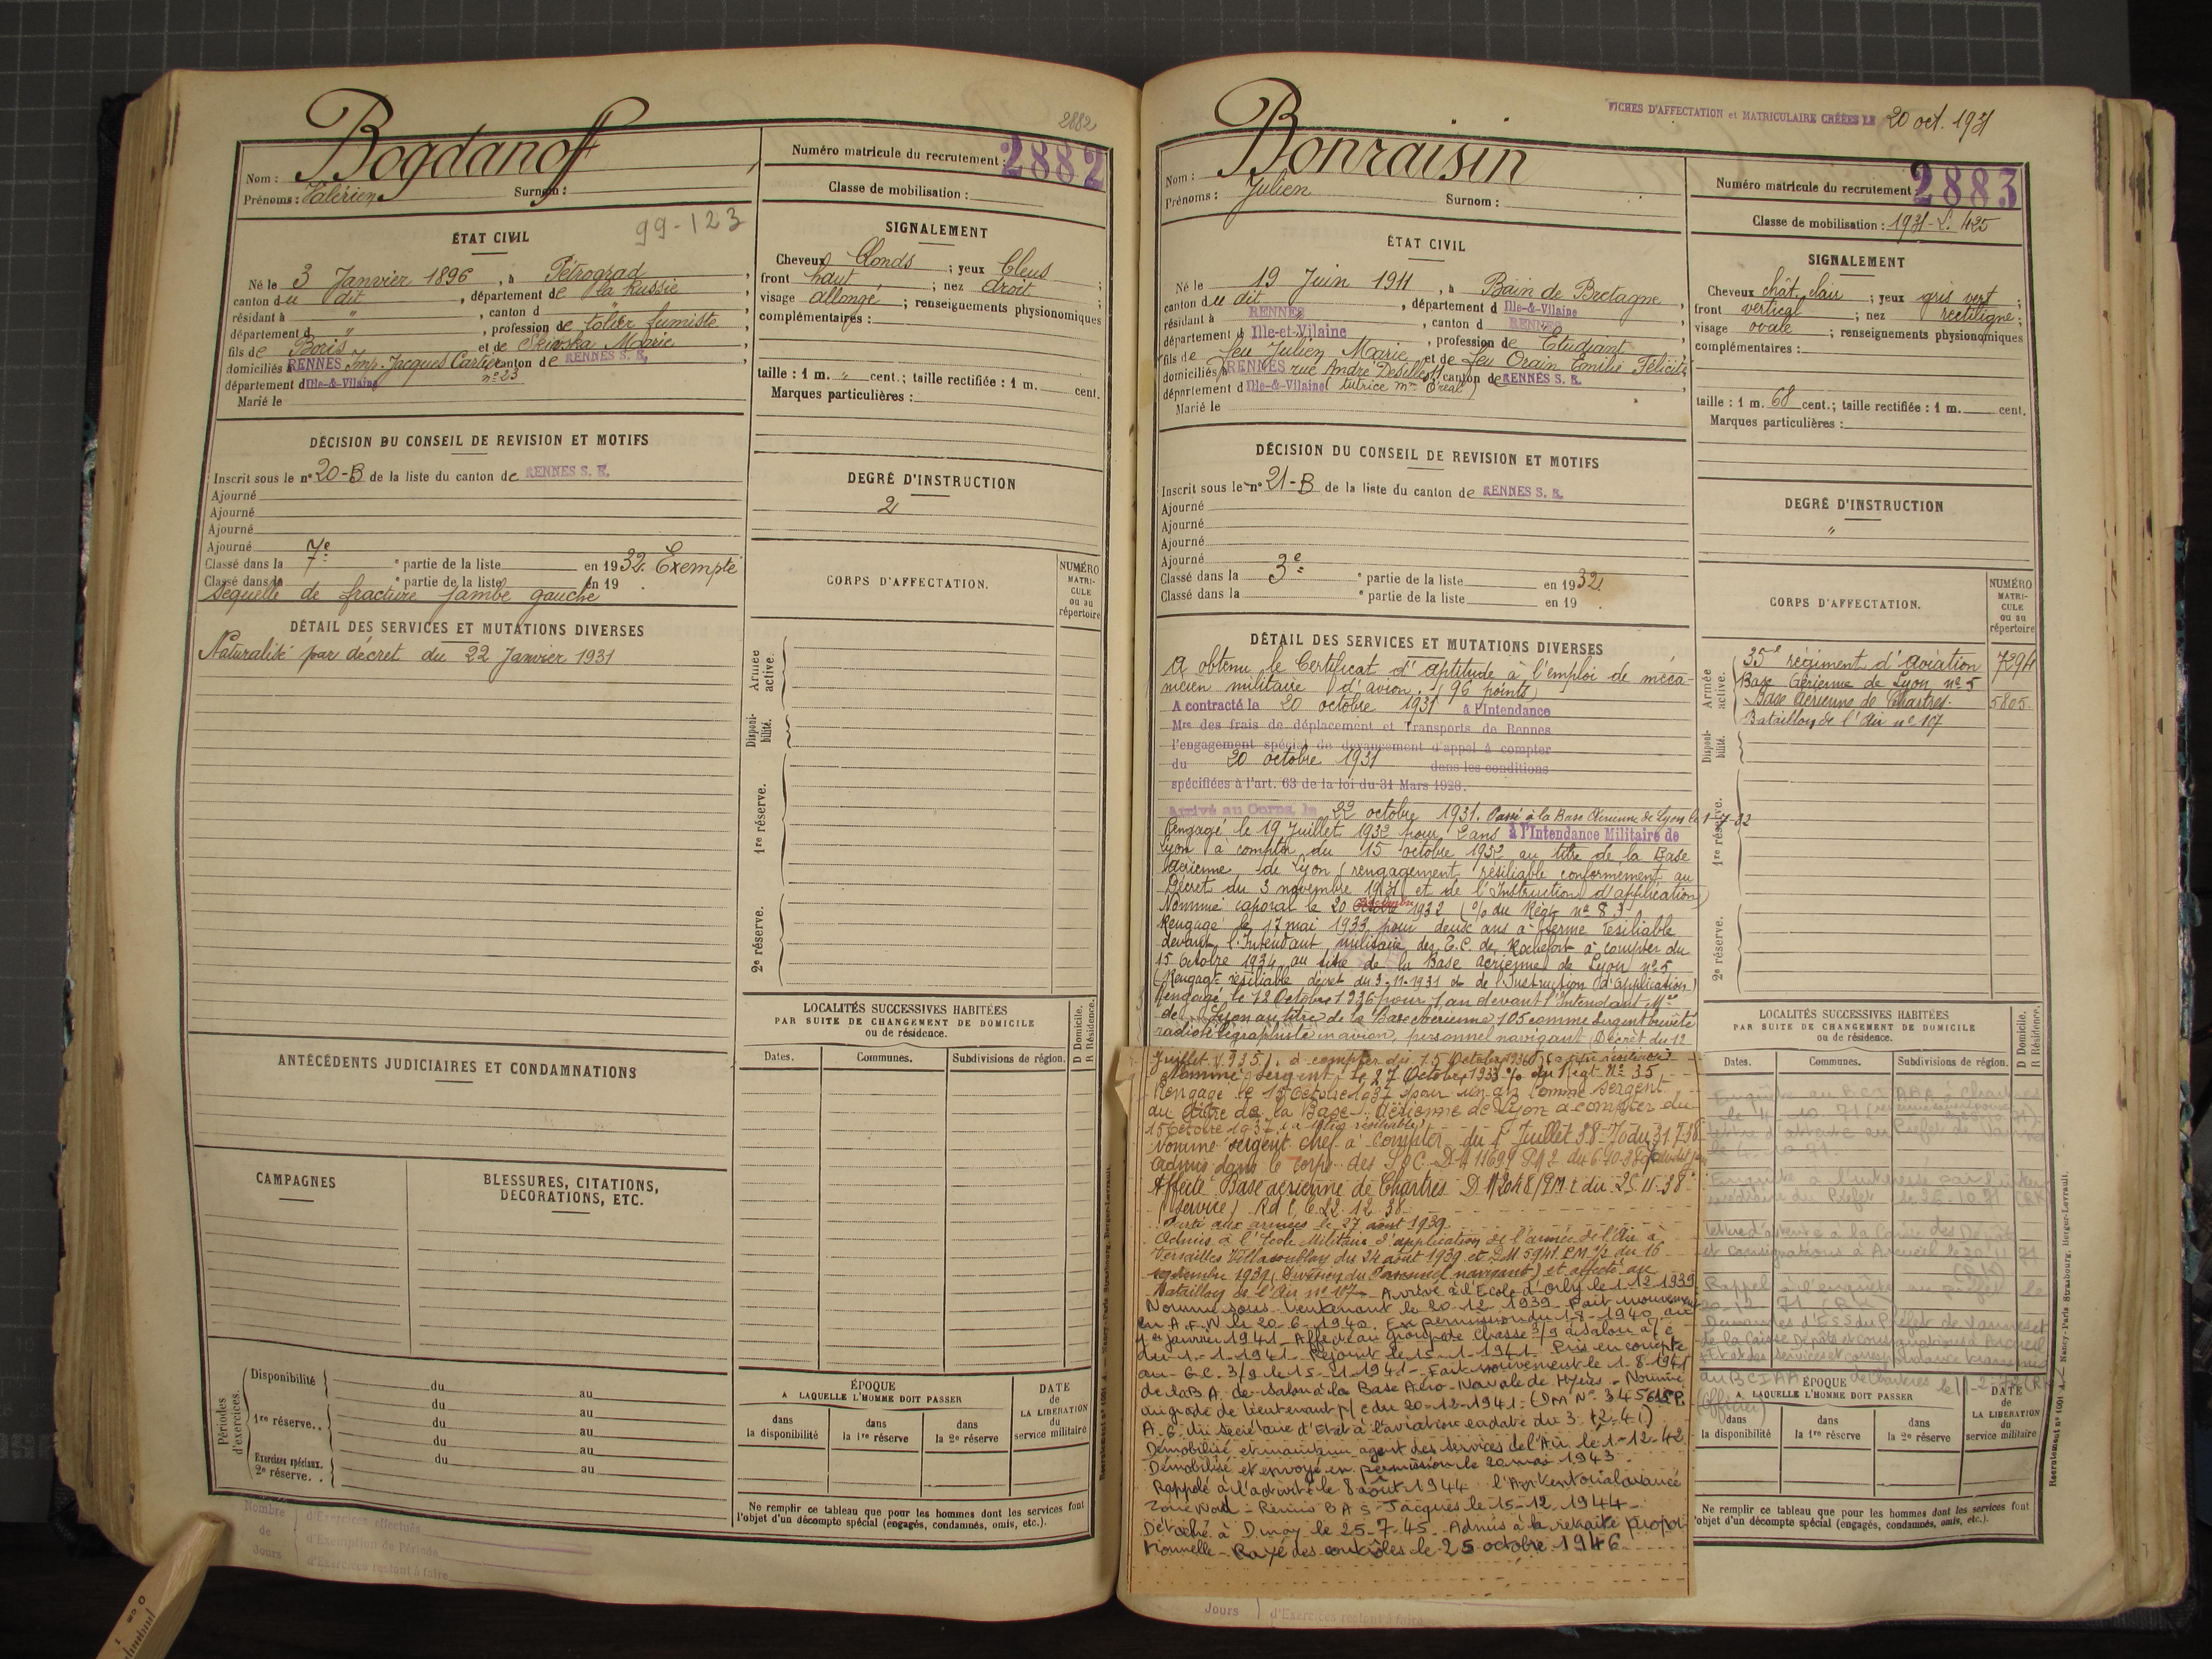 2882
Bogdanoff
Nom :
Prénoms : Valérien Surnom :
Numéro matricule du recrutement : 2882
Classe de mobilisation :
99-123
ÉTAT CIVIL
Né le 3 Janvier 1896, à Pétrograd,
canton du dit, département de la Russie,
résidant à ", canton d
département d ", profession de tôlier fumiste,
fils de Boris et de Marie,
domiciliés à RENNES Imp. Jacques Cartier canton de RENNES S. E.,
n° 23
département d'Ille-&-Vilaine
Marié le
SIGNALEMENT
Cheveux blonds ; yeux bleus ;
front haut ; nez droit ;
visage allongé ; renseignements physionomiques
complémentaires :
taille : 1 m. " cent.; taille rectifiée : 1 m. cent.
Marques particulières :
DÉCISION DU CONSEIL DE REVISION ET MOTIFS
Inscrit sous le n° 20-B de la liste du canton de RENNES S. E.
Ajourné
Ajourné
Ajourné
Ajourné
Classé dans la 7e partie de la liste en 1932. Exempté
Classé dans la e partie de la liste en 19
Séquelle de fracture jambe gauche
DEGRÉ D'INSTRUCTION
2
DÉTAIL DES SERVICES ET MUTATIONS DIVERSES
Naturalisé par décret du 22 Janvier 1931
CORPS D'AFFECTATION.
NUMÉRO MATRI-CULE ou au répertoire
Armée active.
Disponi-bilité.
1re réserve.
2e réserve.
ANTÉCÉDENTS JUDICIAIRES ET CONDAMNATIONS
LOCALITÉS SUCCESSIVES HABITÉES
PAR SUITE DE CHANGEMENT DE DOMICILE
ou de résidence.
D Domicile.
R Résidence.
Dates. Communes. Subdivisions de région.
CAMPAGNES
BLESSURES, CITATIONS,
DÉCORATIONS, ETC.
Périodes d'exercices.
Disponibilité du au
du au
1re réserve.. du au
du au
Exercices spéciaux.
2e réserve. . du au
ÉPOQUE
A LAQUELLE L'HOMME DOIT PASSER
dans la disponibilité
dans la 1re réserve
dans la 2e réserve
DATE DE LA LIBÉRATION du service militaire
Ne remplir ce tableau que pour les hommes dont les services font
l'objet d'un décompte spécial (engagés, condamnés, omis, etc.).
Nombre de Jours
d'Exercices effectués
d'Exemption de Période
d'Exercices restant à faire
FICHES D'AFFECTATION et MATRICULAIRE CRÉÉES LE 20 oct. 1931
Bonraisin
Nom :
Prénoms : Julien Surnom :
Numéro matricule du recrutement 2883
Classe de mobilisation : 1931-S. 425
ÉTAT CIVIL
Né le 19 Juin 1911, à Bain de Bretagne,
canton du dit, département d Ille-&-Vilaine
résidant à RENNES, canton d RENNES
département d Ille-et-Vilaine, profession de Etudiant
fils de feu Julien Marie et de feu Orain Emilie Félicité
domiciliés à RENNES rue André Desilles canton de RENNES S. E.
département d Ille-&-Vilaine (tutrice Mme Oréal)
Marié le
SIGNALEMENT
Cheveux chât. clair ; yeux gris vert ;
front vertical ; nez rectiligne ;
visage ovale ; renseignements physionomiques
complémentaires :
taille : 1 m. 68 cent.; taille rectifiée : 1 m. cent.
Marques particulières :
DÉCISION DU CONSEIL DE REVISION ET MOTIFS
Inscrit sous le n° 21-B de la liste du canton de RENNES S. E.
Ajourné
Ajourné
Ajourné
Ajourné
Classé dans la 3e partie de la liste en 1932.
Classé dans la e partie de la liste en 19 .
DEGRÉ D'INSTRUCTION
"
CORPS D'AFFECTATION.
NUMÉRO MATRI-CULE ou au répertoire
Armée active.
35e régiment d'aviation 7294
Base Aérienne de Lyon n° 5
Base Aérienne de Chartres. 5805
Bataillon de l'Air n° 107
Disponi-bilité.
1re réserve.
2e réserve.
DÉTAIL DES SERVICES ET MUTATIONS DIVERSES
A obtenu le Certificat d'aptitude à l'emploi de méca-
nicien militaire d'avion. (96 points)
A contracté le 20 octobre 1931 à l'Intendance
Mre des frais de déplacement et Transports de Rennes
l'engagement spécial de devancement d'appel à compter
du 20 octobre 1931 dans les conditions
spécifiées à l'art. 63 de la loi du 31 Mars 1928.
Arrivé au Corps, le 22 octobre 1931. Passé à la Base Aérienne de Lyon le 1-7-32
Rengagé le 19 Juillet 1932 pour 2 ans à l'Intendance Militaire de
Lyon à compter du 15 octobre 1932 au titre de la Base
Aérienne de Lyon (rengagement résiliable conformément au
Décret du 3 novembre 1931 et de l'Instruction d'application)
Nommé caporal le 20 1932 (% du Régt n° 83
Rengagé le 17 mai 1933 pour deux ans à terme résiliable
devant l'Intendant militaire des E.C. de Rochefort à compter du
15 octobre 1934 au titre de la Base aérienne de Lyon n° 5
(Rengagt résiliable décret du 3-11-1931 et de l'Instruction d'application)
Rengagé le 12 Octobre 1936 pour 1 an devant l'Intendant Mre
de Lyon au titre de la Base Aérienne 105 comme Sergent breveté
radiotélégraphiste en avion, personnel navigant (Décret du 12
Juillet 1935) à compter du 15 Octobre 1936
Nommé Sergent le 27 Octobre 1933 % du Régt N° 35
Rengagé le 15 Octobre 1937 pour un an comme sergent
au titre de la Base Aérienne de Lyon à compter du
15 Octobre 1937
Nommé sergent chef à compter du 1r Juillet 38 - du 31.7.38
Admis dans le corps des S.O.C. D 11699 P.M 2 du 6-10-38
Affecté Base aérienne de Chartres D 12048/PM 2 du 25-11-38
(service) R d C le 22 12 38
Parti aux armées le 27 août 1939
Admis à l'Ecole Militaire d'application de l'armée de l'Air à
Versailles Villacoublay du 24 août 1939 et D.M 5941 P.M du 16
septembre 1939 (Division du Personnel navigant) et affecté au
Bataillon de l'Air n° 107 - Arrivé à l'Ecole d'Orly le 1-12-1939
Nommé sous lieutenant le 20-12-1939 - Fait mouvement
en A.F.N le 20-6-1940. En permission du 1-8-1940 au
1er janvier 1941 - Affecté au groupe de Chasse 3/9 à Salon à/c
du 1-1-1941 - Rejoint le 15-1-1941. Pris en compte
au G.C. 3/9 le 15-1-1941 - Fait mouvement le 1-8-1941
de la B.A. de Salon à la Base Aéro-Navale de Hyères - Nommé
au grade de lieutenant p/c du 20-12-1941 - (DM N° 345
A.G du Secrétaire d'Etat à l'aviation en date du 3-12-41)
Démobilisé et maintenu agent des Services de l'Air le 1-12-42
Démobilisé et envoyé en permission le 20 mai 1943
Rappelé à l'activité le 8 août 1944
Zone Nord - Rennes BA S-Jacques le 15-12-1944
Détaché à le 25-7-45 - Admis à la retraite propor-
tionnelle - Rayé des contrôles le 25 octobre 1946
LOCALITÉS SUCCESSIVES HABITÉES
PAR SUITE DE CHANGEMENT DE DOMICILE
ou de résidence.
D Domicile.
R Résidence.
Dates. Communes. Subdivisions de région.
Enquête au à Chartres
le 4-10-71
Lettre d'attente au Préfet de Vannes
le 4-10-71.
Enquête à l'intéressé par l'inter-
médiaire du Préfet le 26-10-71
Lettre d'attente à la Caisse des Dépôts
et consignations à Arcueil le 71
Rappel à l'enquête au préfet le
20-12-71
Demandes d'ESS du Préfet de Vannes et
de la Caisse Dépôts et Consignations à Arcueil
Etat des services et correspondance transmis
au BCIAA de Chartres le
(Officier)
ÉPOQUE
A LAQUELLE L'HOMME DOIT PASSER
dans la disponibilité
dans la 1re réserve
dans la 2e réserve
DATE DE LA LIBÉRATION du service militaire
Ne remplir ce tableau que pour les hommes dont les services font
l'objet d'un décompte spécial (engagés, condamnés, omis, etc.).
Jours d'Exercices restant à faire